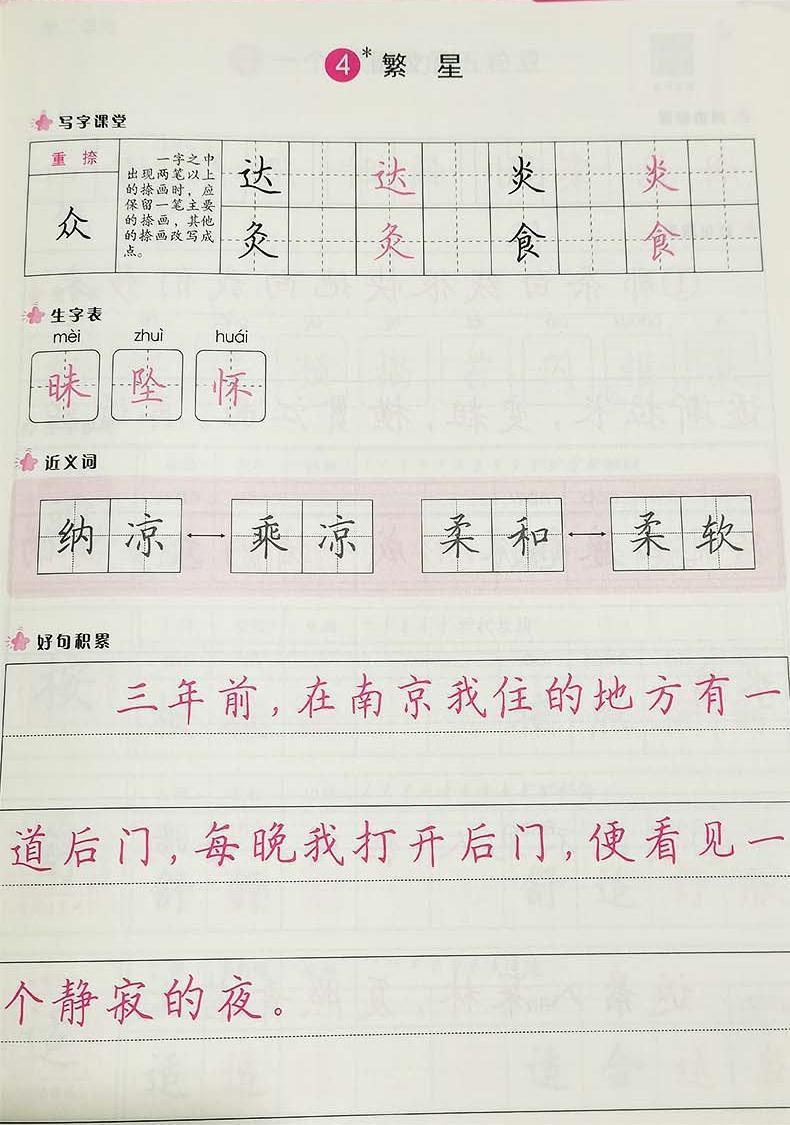 4* 繁 星
写字课堂
重 捺
众
一字之中
出现两笔以上
的捺画时，应
保留一笔主要
的捺画，其他
的捺画改写成
点。
达 达 炎 炎
灸 灸 食 食
生字表
mèi zhuì huái
昧 坠 怀
近义词
纳凉 ↔ 乘凉 柔和 ↔ 柔软
好句积累
三年前，在南京我住的地方有一
道后门，每晚我打开后门，便看见一
个静寂的夜。